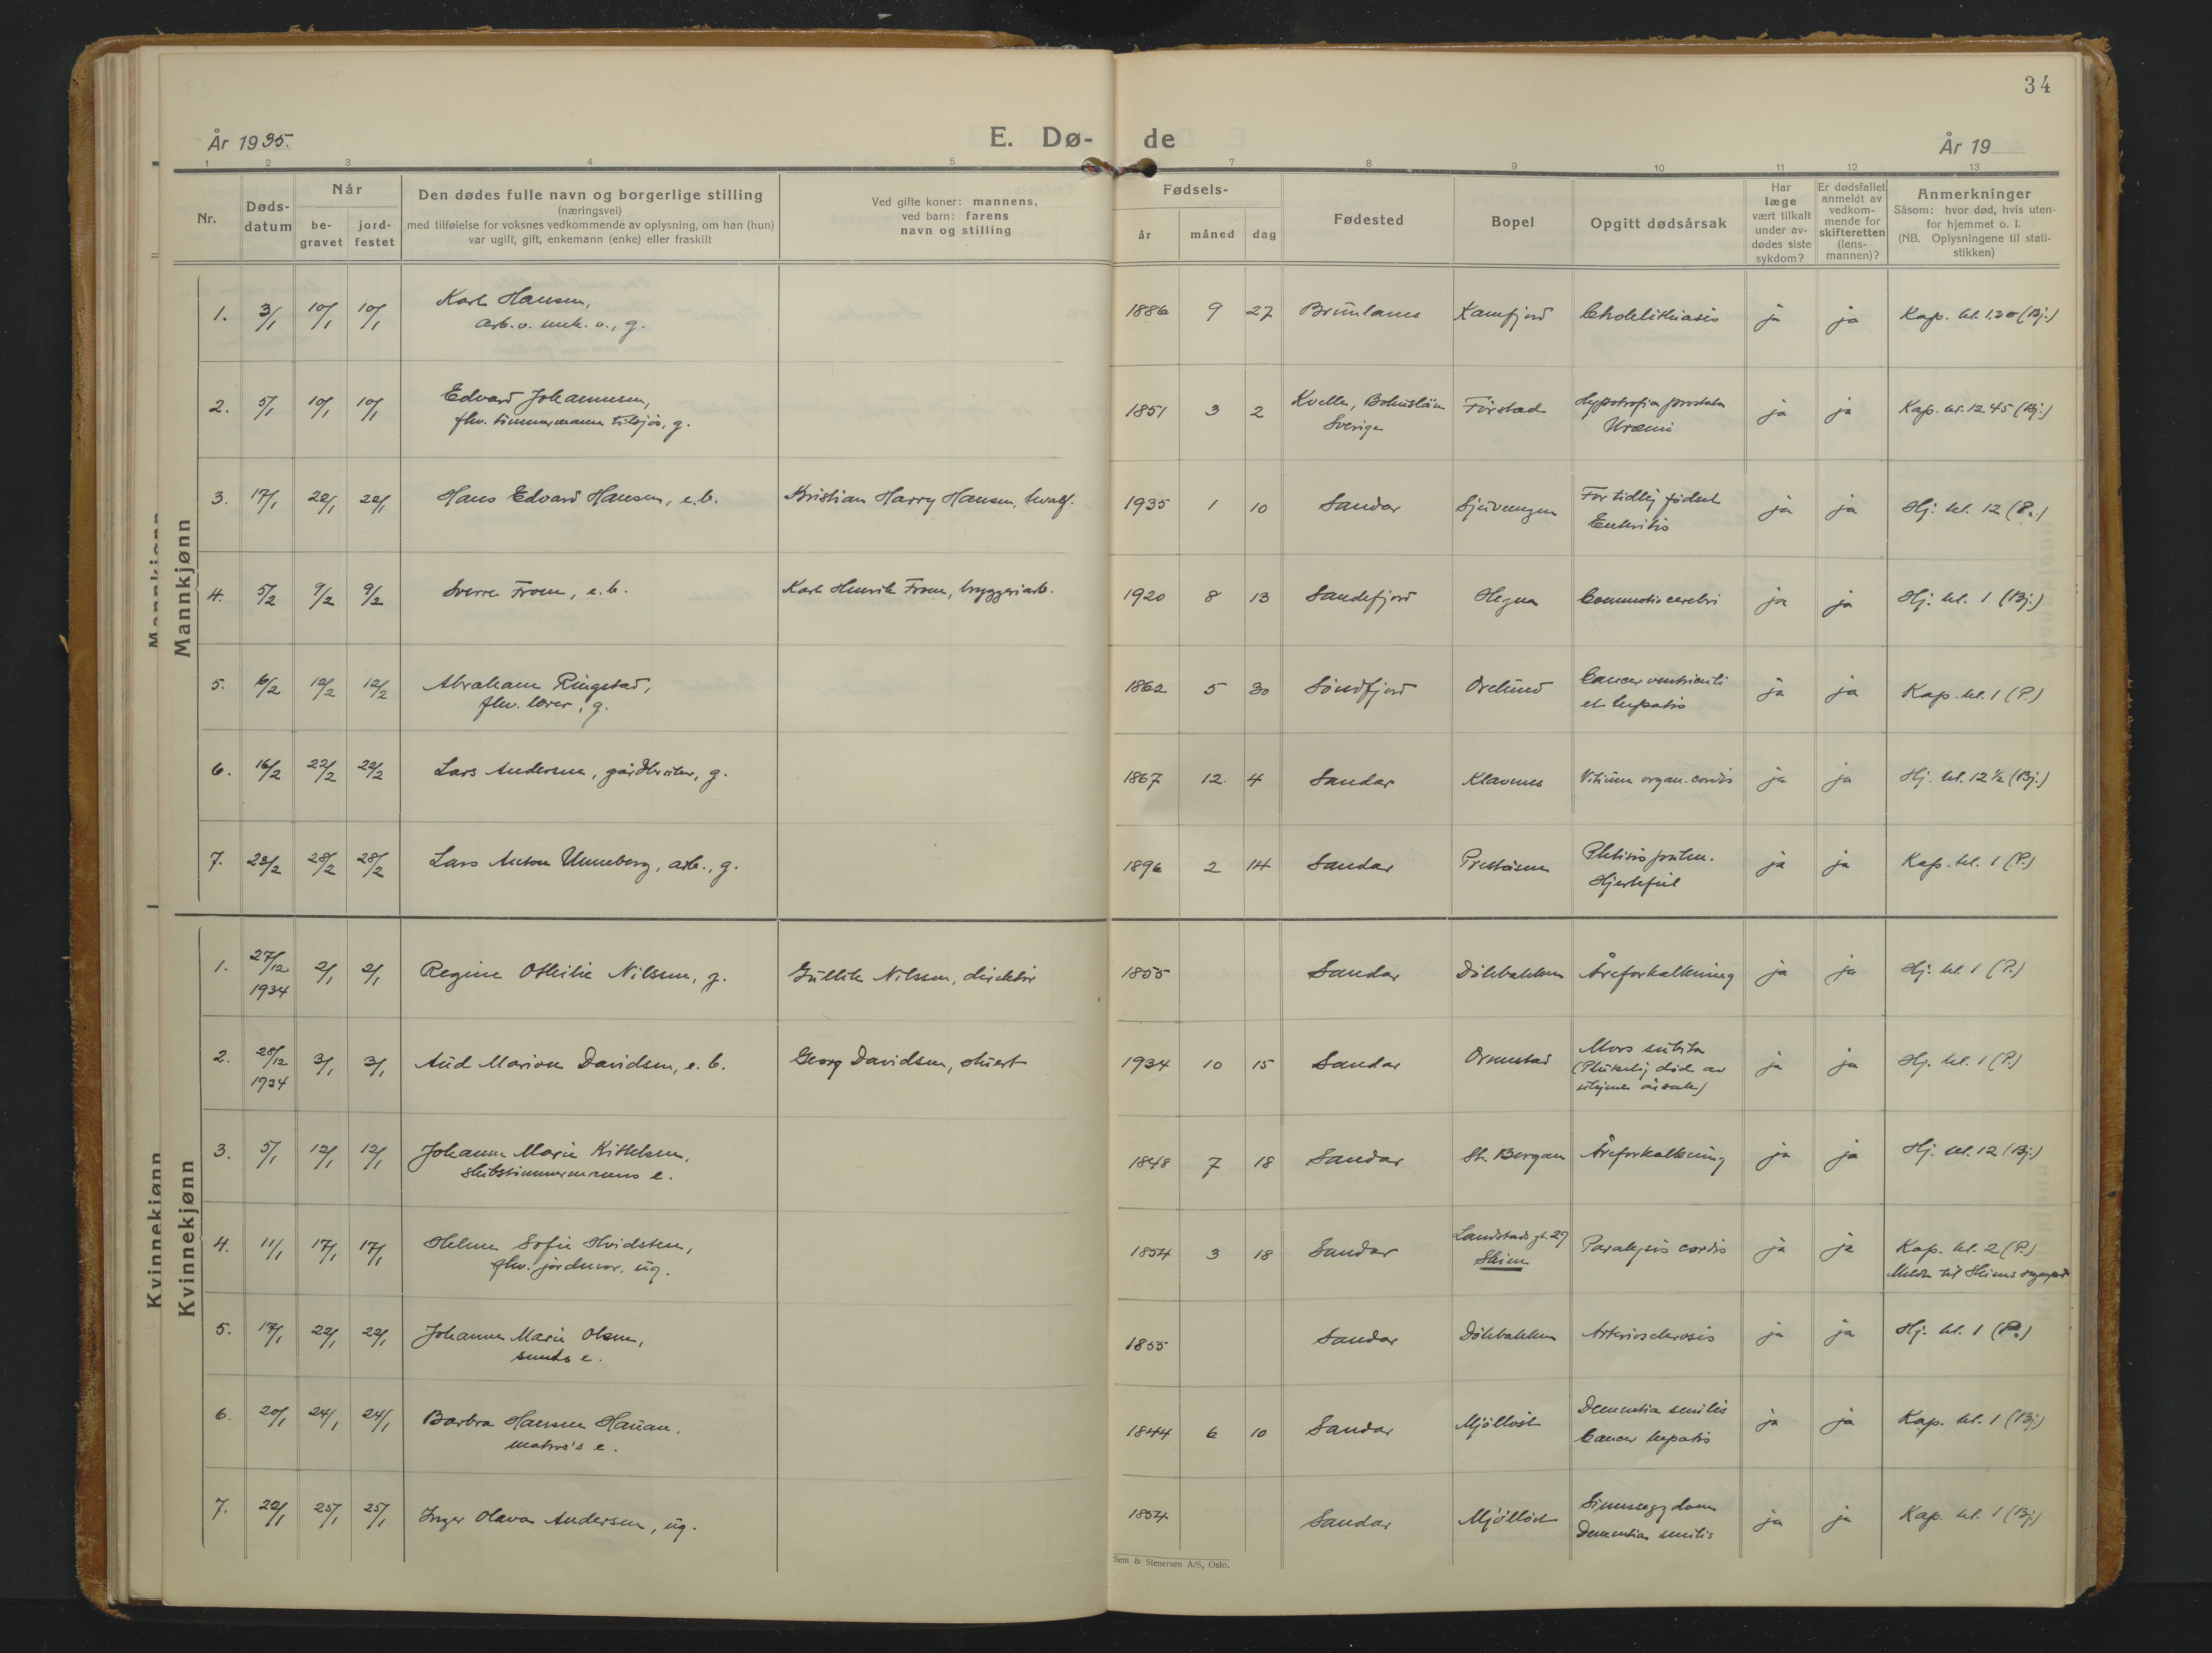 34
År 1935.
E. Dø-
de
År 19
1 2 3 4 5 7 8 9 10 11 12 13
Nr.
Døds-
datum
Når
be-
gravet
jord-
festet
Den dødes fulle navn og borgerlige stilling
(næringsvei)
med tilføielse for voksnes vedkommende av oplysning, om han (hun)
var ugift, gift, enkemann (enke) eller fraskilt
Ved gifte koner: mannens,
ved barn: farens
navn og stilling
Fødsels-
år måned dag
Fødested
Bopel
Opgitt dødsårsak
Har
læge
vært tilkalt
under av-
dødes siste
sykdom?
Er dødsfallet
anmeldt av
vedkom-
mende for
skifteretten
(lens-
mannen)?
Anmerkninger
Såsom: hvor død, hvis uten-
for hjemmet o. l.
(NB. Oplysningene til stati-
stikken)
Mannkjønn
1. 3/1 10/1 10/1 Karl Hansen, 1886 9 27 Brunlanes Kamfjord Cholelithiasis ja ja Kap. kl. 1.30 (Bj.)
arb. v. mek. v., g.
2. 5/1 10/1 10/1 Edvard Johannesen, 1851 3 2 Kville, Bohuslän Förstad Hypotrofia prostata ja ja Kap. kl. 12.45 (Bj.)
fhv. timmermann tilsjös, g. Sverige Uræmi
3. 17/1 22/1 22/1 Hans Edvard Hansen, e.b. Kristian Harry Hansen, hvalf. 1935 1 10 Sandar For tidlig fødsel ja ja Hj. kl. 12 (P.)
Enteritis
4. 5/2 9/2 9/2 Sverre From, e.b. Karl Henrik From, bryggeriarb. 1920 8 13 Sandefjord Hegna Commotio cerebri ja ja Hj. kl. 1 (Bj.)
5. 6/2 12/2 12/2 Abraham Ringstad, 1862 5 30 Söndfjord Orelund Cancer ventriculi ja ja Kap. kl. 1 (P.)
fhv. lærer, g. et hepatis
6. 16/2 22/2 22/2 Lars Andersen, gårdbruker, g. 1867 12. 4 Sandar Klavenes Vitium organ. cordis ja ja Hj. kl. 12½ (Bj.)
7. 23/2 28/2 28/2 Lars Anton Unneberg, arb., g. 1896 2 14 Sandar Preståsen Phtisis pulm. ja ja Kap. kl. 1 (P.)
Hjertefeil
Kvinnekjønn
1. 27/12 2/1 2/1 Regine Othilie Nilsen, g. Gullik Nilssen, direktör 1855 Sandar Dölebakken Åreforkalkning ja ja Hj. kl. 1 (P.)
1934
2. 28/12 3/1 3/1 Aud Marion Davidsen, e.b. Georg Davidsen, stuert 1934 10 15 Sandar Ormestad Mors subita ja ja Hj. kl. 1 (P.)
1934 (Plutselig död av
ukjent årsak)
3. 5/1 12/1 12/1 Johanne Marie Kittelsen, 1848 7 18 Sandar St. Bergan Åreforkalkning ja ja Hj. kl. 12 (Bj.)
skibstimmermanns e.
4. 11/1 17/1 17/1 Helene Sofie Hvidsten, 1854 3 18 Sandar Landstads gt. 27 Paralysis cordis ja ja Kap. kl. 2 (P.)
fhv. jordmor, ug. Skien Meldt til Skiens
5. 17/1 22/1 22/1 Johanne Marie Olsen, 1855 Sandar Dölebakken Arteriosclerosis ja ja Hj. kl. 1 (P.)
smeds e.
6. 20/1 24/1 24/1 Barbra Hansen Hauan, 1844 6 10 Sandar Mjöllöst Dementia senilis ja ja Kap. kl. 1 (Bj)
matros's e. Cancer hepatis
7. 22/1 25/1 25/1 Inger Olava Andersen, ug. 1854 Sandar Mjöllöst Sinnssygdom ja ja Kap. kl. 1 (Bj.)
Dementia senilis
Sem & Stenersen A/S, Oslo.
Mannkjønn
Kvinnekjønn